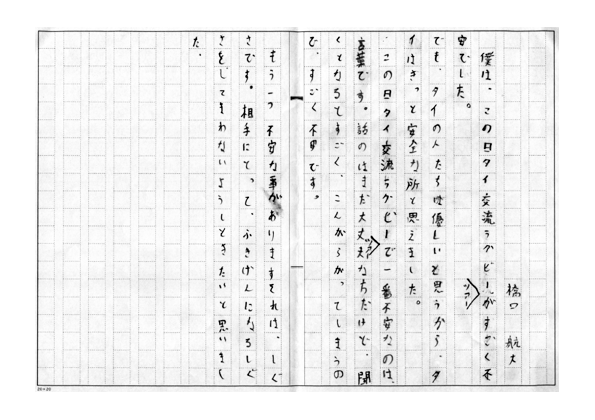 橋口 航大
僕は、この日タイ交流ラグビーツアーがすごく不
安でした。
でも、タイの人たちは優しいと思うから、タ
イはきっと安全な所と思えました。
この日タイ交流ラグビーツアーで一番不安なのは、
言葉です。話のはまだ大丈夫なちだけど、聞
くとなるとすごく、こんがらがってしまうの
で、すごく不安です。
もう一つ不安な事がありますそれは、しぐ
さです。相手にとって、ふきげんになるしぐ
さをしてきわないようしときたいと思いまし
た。
20×20